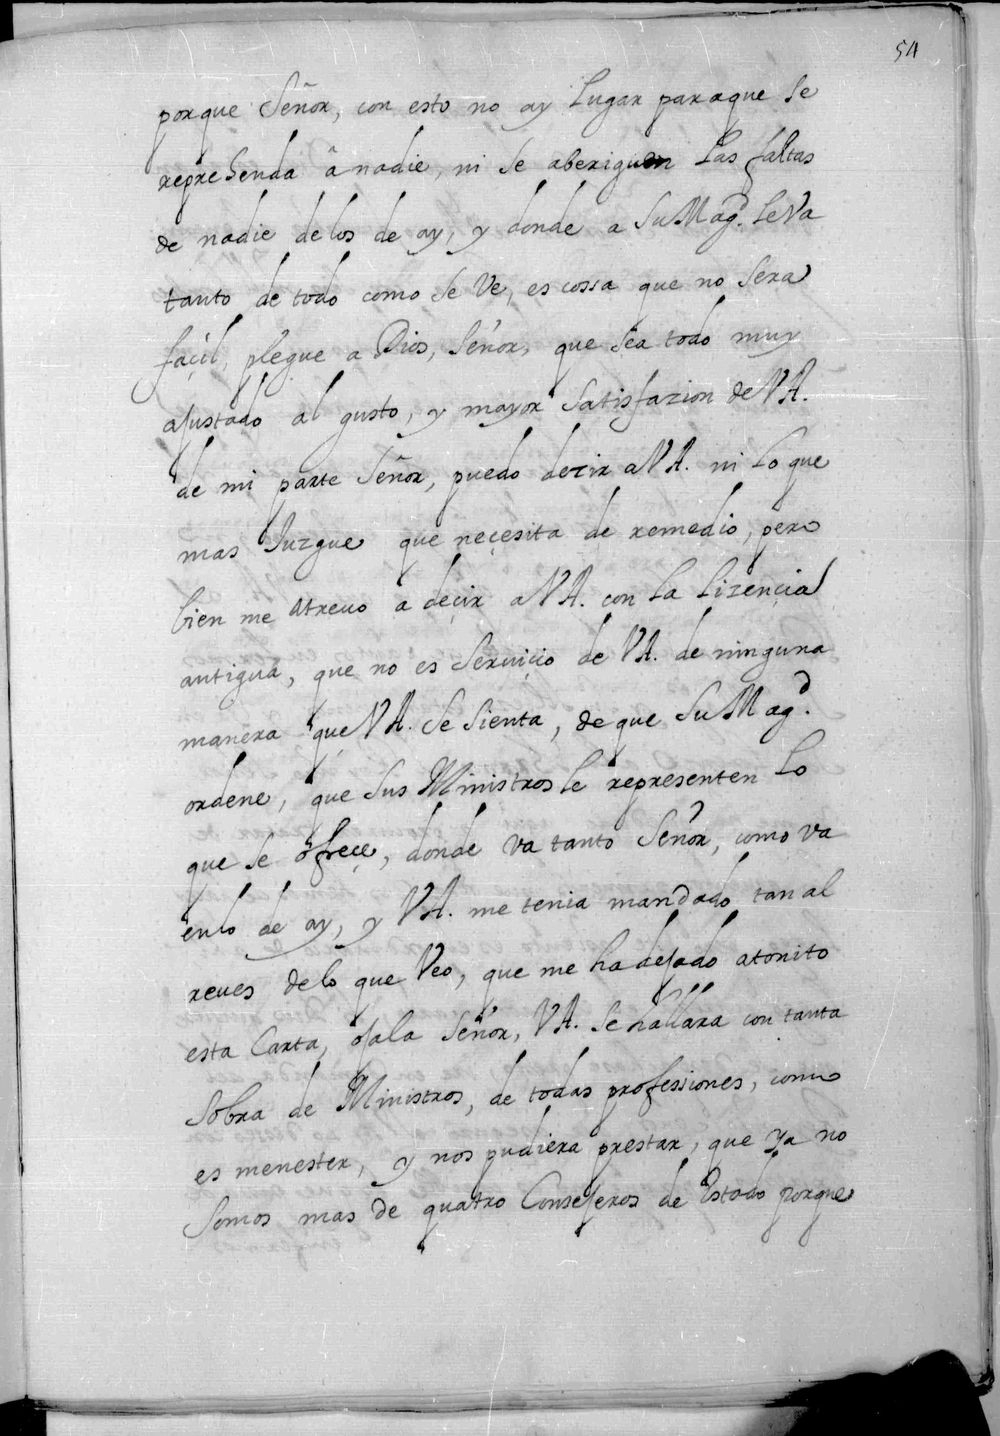 54
porque Señor, con esto no ay Lugar paraque se
reprehenda â nadie, ni se aberiguen las faltas
de nadie delos de ay, y donde a Su Magd. leva
tanto de todo como se ve, es cossa que no sera
façil, plegue a Dios, Señor, que sea todo muy
ajustado al gusto, y mayor satisfazion de V A.
de mi parte Señor, puedo dezir a V A. ni lo que
mas Juzgue que neçesita de remedio, pero
bien me atreuo a deçir a V A. con la lizençia
antigua, que no es seruiçio de V A. de ninguna
manera que V A. se sienta, de que Su Magd.
ordene, que sus Ministros le representen lo
que se ofreçe, donde va tanto Señor, como va
enlo de ay, y V A. me tenia mandado tan al
reues delo que Veo, que me ha dejado atonito
esta Carta, ojala Señor, V A. se hallara con tanta
sobra de Ministros, de todas professiones, como
es menester, y nos pudiera prestar, que ya no
somos mas de quatro Consejeros de Estado porque